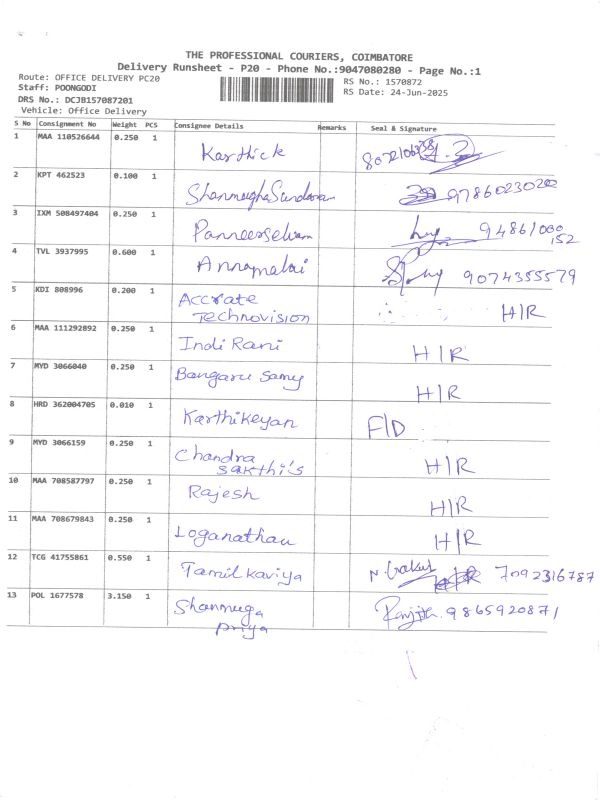 THE PROFESSIONAL COURIERS, COIMBATORE
Delivery Runsheet - P20 - Phone No.:9047080280 - Page No.:1
Route: OFFICE DELIVERY PC20
RS No.: 1570872
Staff: POONGODI
RS Date: 24-Jun-2025
DRS No.: DCJB157087201
Vehicle: Office Delivery
S No Consignment No Weight PCS Consignee Details Remarks Seal & Signature
1 MAA 110526644 0.250 1 Karthick
2 KPT 462523 0.100 1 ShanmughaSundaram 9786023020
3 IXM 508497404 0.250 1 Panneerselvam 94861000
152
4 TVL 3937995 0.600 1 Annamalai 9074355579
5 KDI 808996 0.200 1 Accrate
Technovision H/R
6 MAA 111292892 0.250 1 Indi Rani H/R
7 MYD 3066040 0.250 1 Bangaru Samy H/R
8 HRD 362004705 0.010 1 Karthikeyan F/D
9 MYD 3066159 0.250 1 Chandra
Sakthi's H/R
10 MAA 708587797 0.250 1 Rajesh H/R
11 MAA 708679843 0.250 1 Loganathan H/R
12 TCG 41755861 0.550 1 Tamil Kaviya N. Gokul 7092316787
13 POL 1677578 3.150 1 Shanmuga
Priya Ranjith. 9865920871